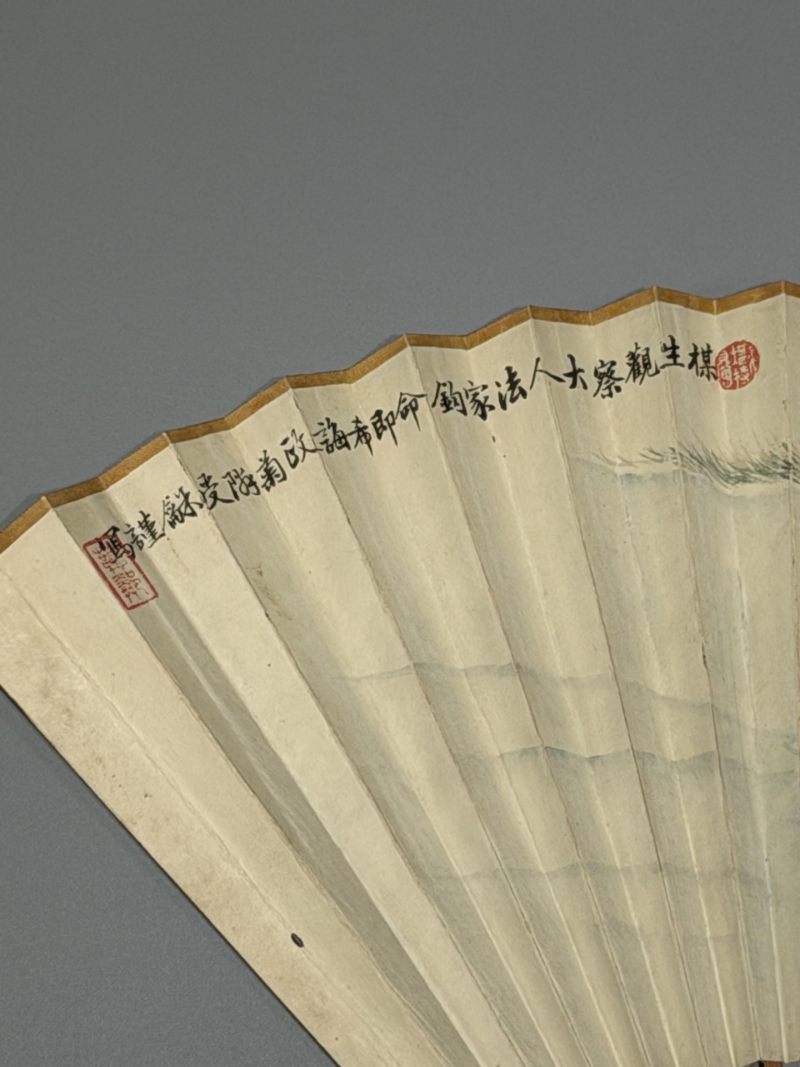 楳生觀察大人法家鈞命即希誨政菊隣受龢謹寫